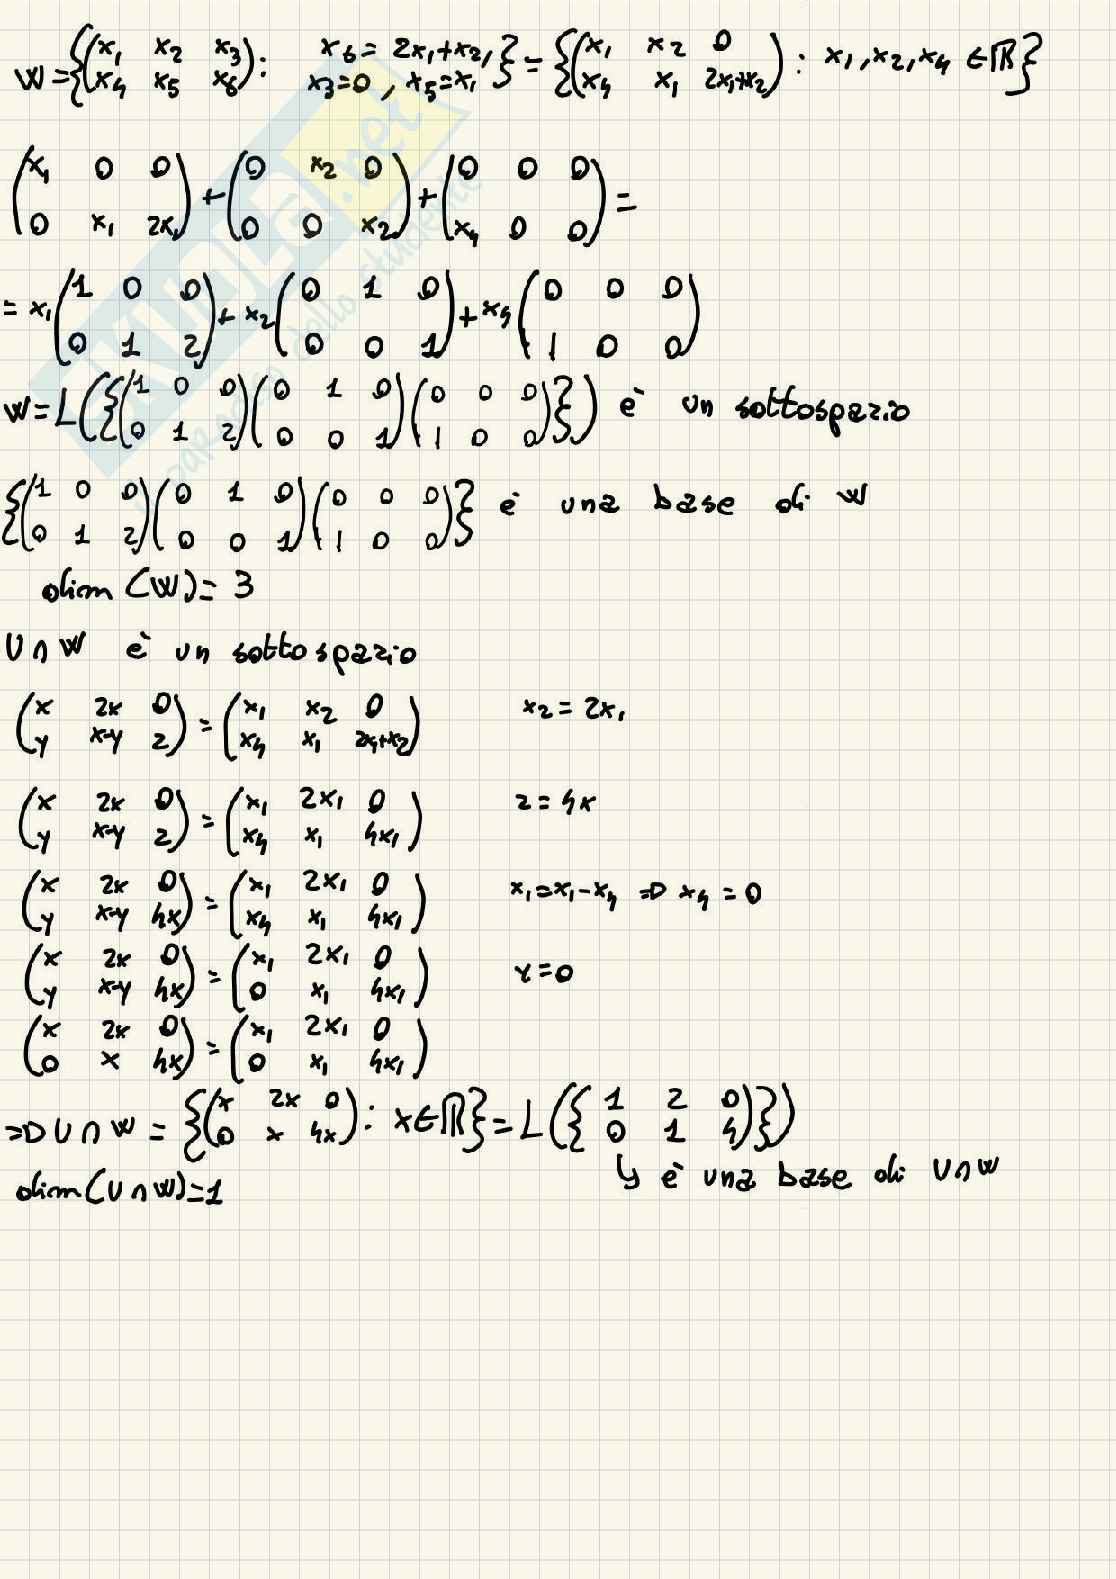 W = {(x₁ x₂ x₃ ; x₄ x₅ x₆) : x₆ = 2x₁+x₂, x₃=0, x₅=x₁} = {(x₁ x₂ 0 ; x₄ x₁ 2x₁+x₂) : x₁, x₂, x₄ ∈ ℝ}
(x₁ 0 0 ; 0 x₁ 2x₁) + (0 x₂ 0 ; 0 0 x₂) + (0 0 0 ; x₄ 0 0) =
= x₁ (1 0 0 ; 0 1 2) + x₂ (0 1 0 ; 0 0 1) + x₄ (0 0 0 ; 1 0 0)
W = L({(1 0 0 ; 0 1 2) (0 1 0 ; 0 0 1) (0 0 0 ; 1 0 0)}) è un sottospazio
{(1 0 0 ; 0 1 2) (0 1 0 ; 0 0 1) (0 0 0 ; 1 0 0)} è una base di W
dim (W) = 3
U ∩ W è un sottospazio
(x 2x 0 ; y x-y z) = (x₁ x₂ 0 ; x₄ x₁ 2x₁+x₂) x₂ = 2x₁
(x 2x 0 ; y x-y z) = (x₁ 2x₁ 0 ; x₄ x₁ 4x₁) z = 4x
(x 2x 0 ; y x-y 4x) = (x₁ 2x₁ 0 ; x₄ x₁ 4x₁) x₁ = x₁ - x₄ ⇒ x₄ = 0
(x 2x 0 ; y x-y 4x) = (x₁ 2x₁ 0 ; 0 x₁ 4x₁) y = 0
(x 2x 0 ; 0 x 4x) = (x₁ 2x₁ 0 ; 0 x₁ 4x₁)
⇒ U ∩ W = {(x 2x 0 ; 0 x 4x) : x ∈ ℝ} = L({1 2 0 ; 0 1 4)})
↳ è una base di U ∩ W
dim (U ∩ W) = 1